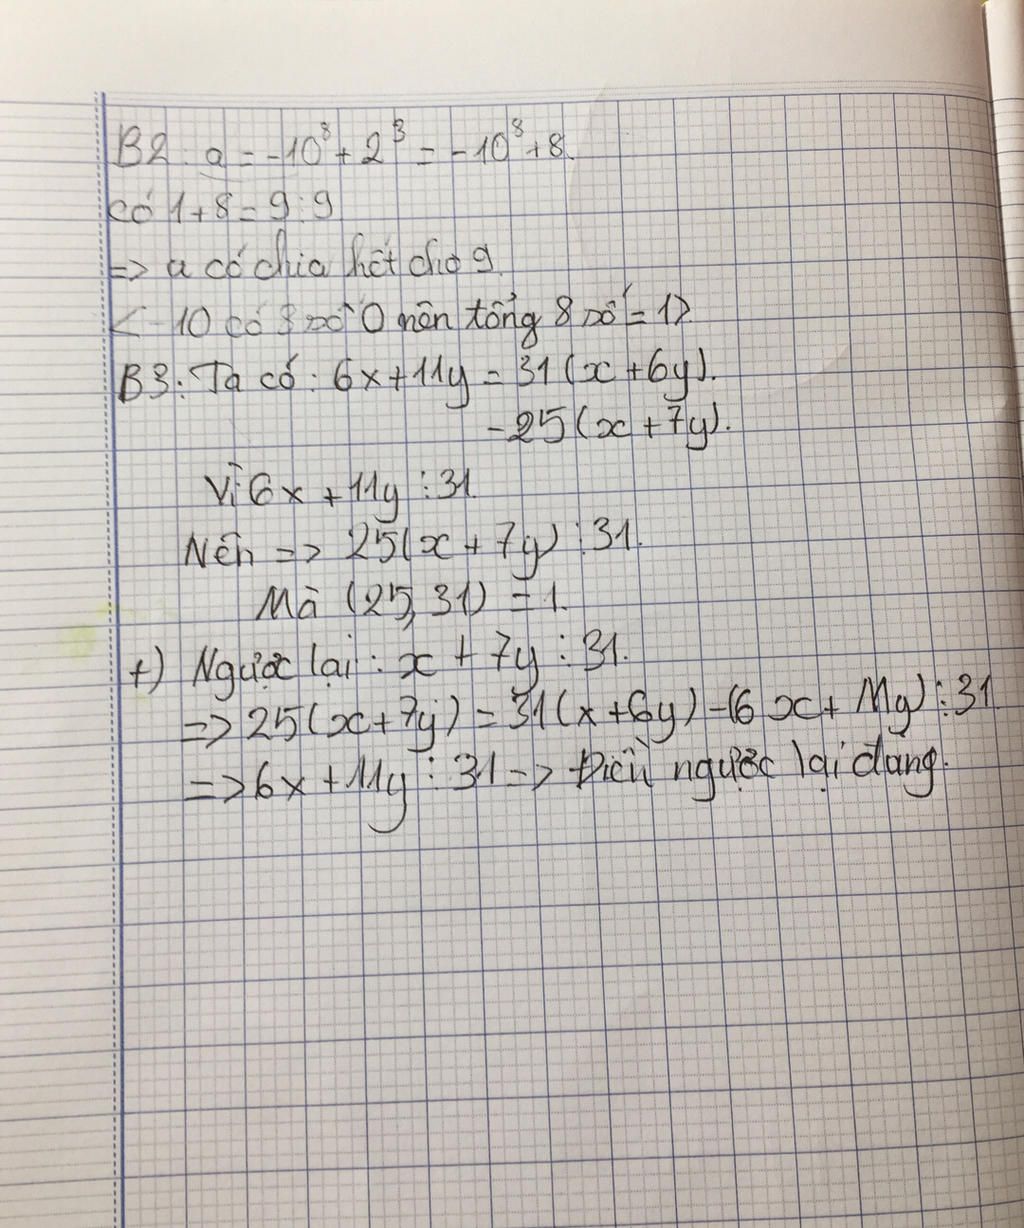 B2: a = -10⁸ + 2³ = -10⁸ + 8.
có 1 + 8 = 9 ⋮ 9
=> a có chia hết cho 9.
<-10 có 8 số 0 nên tổng 8 số = 1>
B3: Ta có: 6x + 11y = 31(x + 6y).
- 25(x + 7y).
Vì 6x + 11y ⋮ 31.
Nên => 25(x + 7y) ⋮ 31.
Mà (25, 31) = 1.
+) Ngược lại: x + 7y ⋮ 31.
=> 25(x + 7y) = 31(x + 6y) - (6x + 11y) ⋮ 31
=> 6x + 11y ⋮ 31 => Điều ngược lại đang.